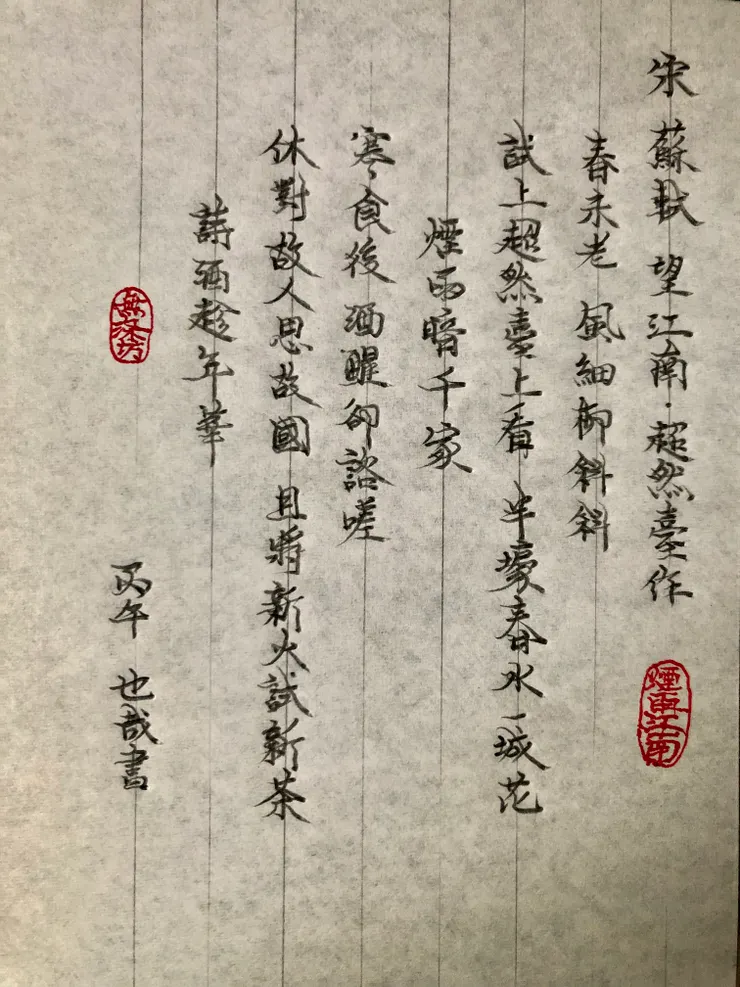 宋 蘇軾 望江南·超然臺作
春未老 風細柳斜斜
試上超然臺上看 半壕春水一城花
煙雨暗千家
寒食後 酒醒卻諮嗟
休對故人思故國 且將新火試新茶
詩酒趁年華
丙午 也哉書
煙雨江南